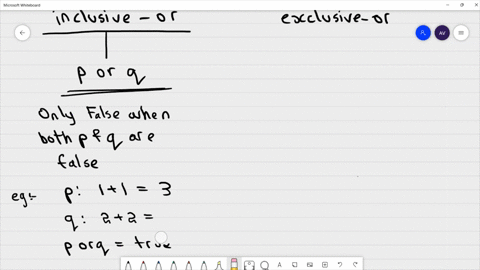 Microsoft Whiteboard
inclusive-or
exclusive-or
AV
p or q
Only False when
both p & q are
false
eg:-
p: 1+1 = 3
q: 2+2 =
p or q = true